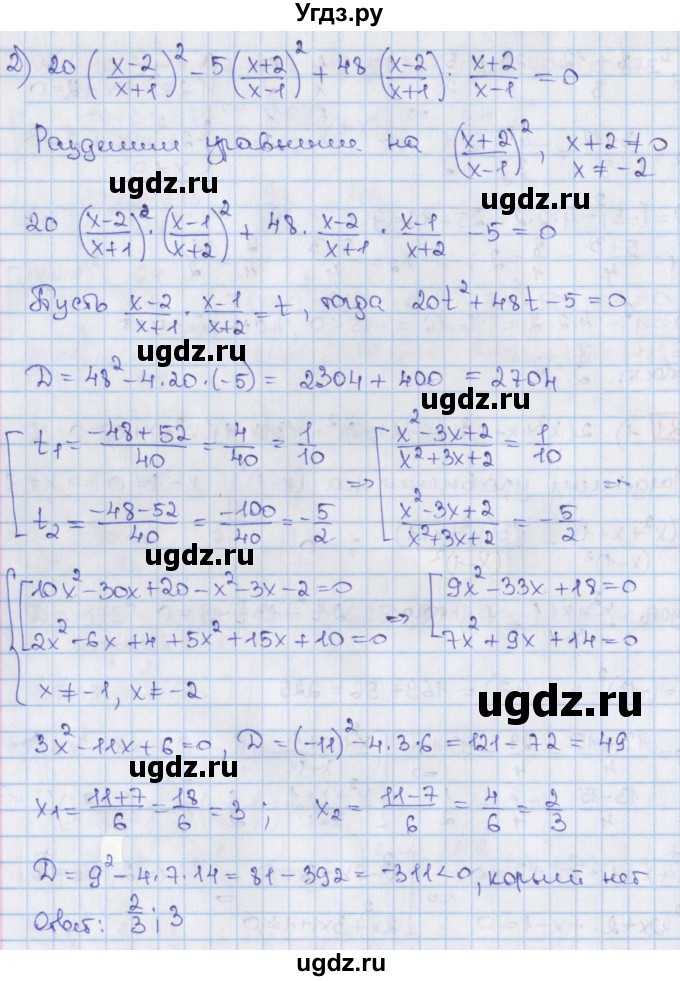 Угдз.ру
2) 20 ((x-2)/(x+1))² - 5 ((x+2)/(x-1))² + 48 ((x-2)/(x+1)) · (x+2)/(x-1) = 0
Разделим уравнение на ((x+2)/(x-1))², x+2≠0
x≠-2
ugdz.ru ugdz.ru
20 ((x-2)/(x+1))² · ((x-1)/(x+2))² + 48 · (x-2)/(x+1) · (x-1)/(x+2) - 5 = 0
Пусть (x-2)/(x+1) · (x-1)/(x+2) = t, тогда 20t² + 48t - 5 = 0
ugdz.ru
D = 48² - 4·20·(-5) = 2304 + 400 = 2704
ugdz.ru
[ t₁ = (-48+52)/40 = 4/40 = 1/10 => [ (x²-3x+2)/(x²+3x+2) = 1/10 =>
t₂ = (-48-52)/40 = -100/40 = -5/2 (x²-3x+2)/(x²+3x+2) = -5/2
ugdz.ru
{ [ 10x²-30x+20-x²-3x-2=0 => [ 9x²-33x+18=0
2x²-6x+4+5x²+15x+10=0 7x²+9x+14=0
x≠-1, x≠-2
ugdz.ru
3x²-11x+6=0, D = (-11)² - 4·3·6 = 121-72 = 49
ugdz.ru
x₁ = (11+7)/6 = 18/6 = 3; x₂ = (11-7)/6 = 4/6 = 2/3
D = 9² - 4·7·14 = 81-392 = -311<0, корней нет
Ответ: 2/3; 3
ugdz.ru
ugdz.ru